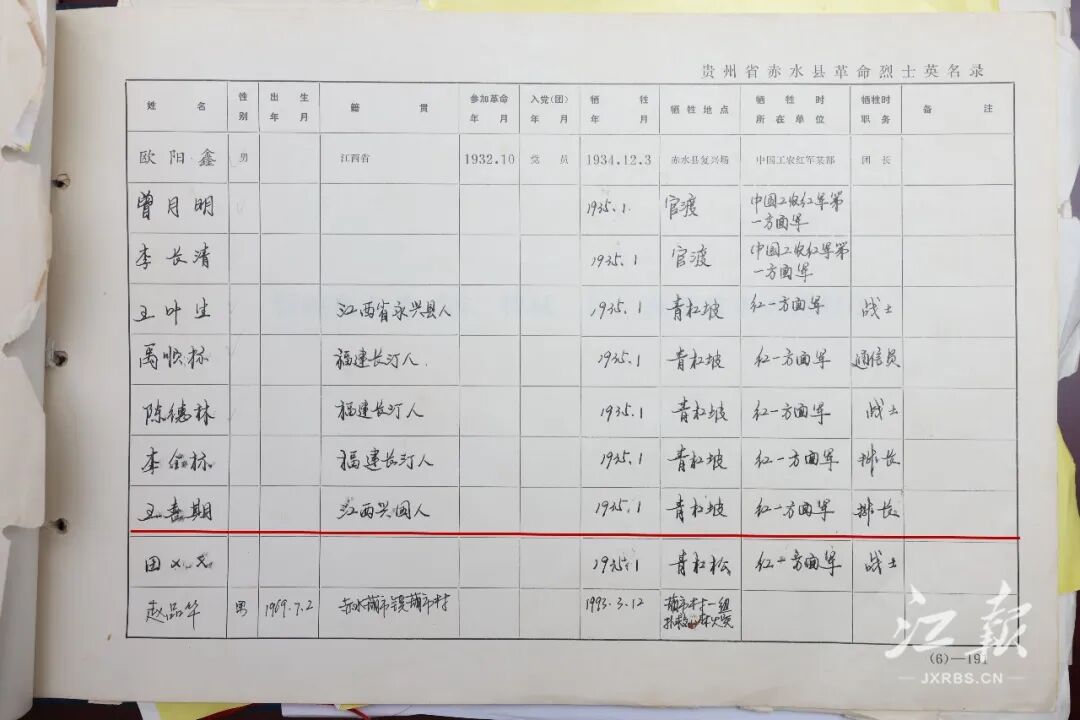 贵州省赤水县革命烈士英名录
姓名 性别 出生年月 籍贯 参加革命年月 入党(团)年月 牺牲年月 牺牲地点 牺牲时所在单位 牺牲时职务 备注
欧阳鑫 男 江西省 1932.10 党员 1934.12.3 赤水县复兴场 中国工农红军某部 团长
曾月明 1935.1. 官渡 中国工农红军第一方面军
李长清 1935.1 官渡 中国工农红军第一方面军
王叶生 江西省永兴县人 1935.1 青杠坡 红一方面军 战士
禹顺标 福建长汀人. 1935.1 青杠坡 红一方面军 通信员
陈德林 福建长汀人 1935.1 青杠坡 红一方面军 战士
李金标 福建长汀人 1935.1 青杠坡 红一方面军 排长
王喜期 江西兴国人 1935.1 青杠坡 红一方面军 排长
田 1935.1 青杠松 红一方面军 战士
赵品华 男 1969.7.2 赤水葫市镇葫市村 1993.3.12 葫市村一组
(6)—191
江报
JXRBS.CN